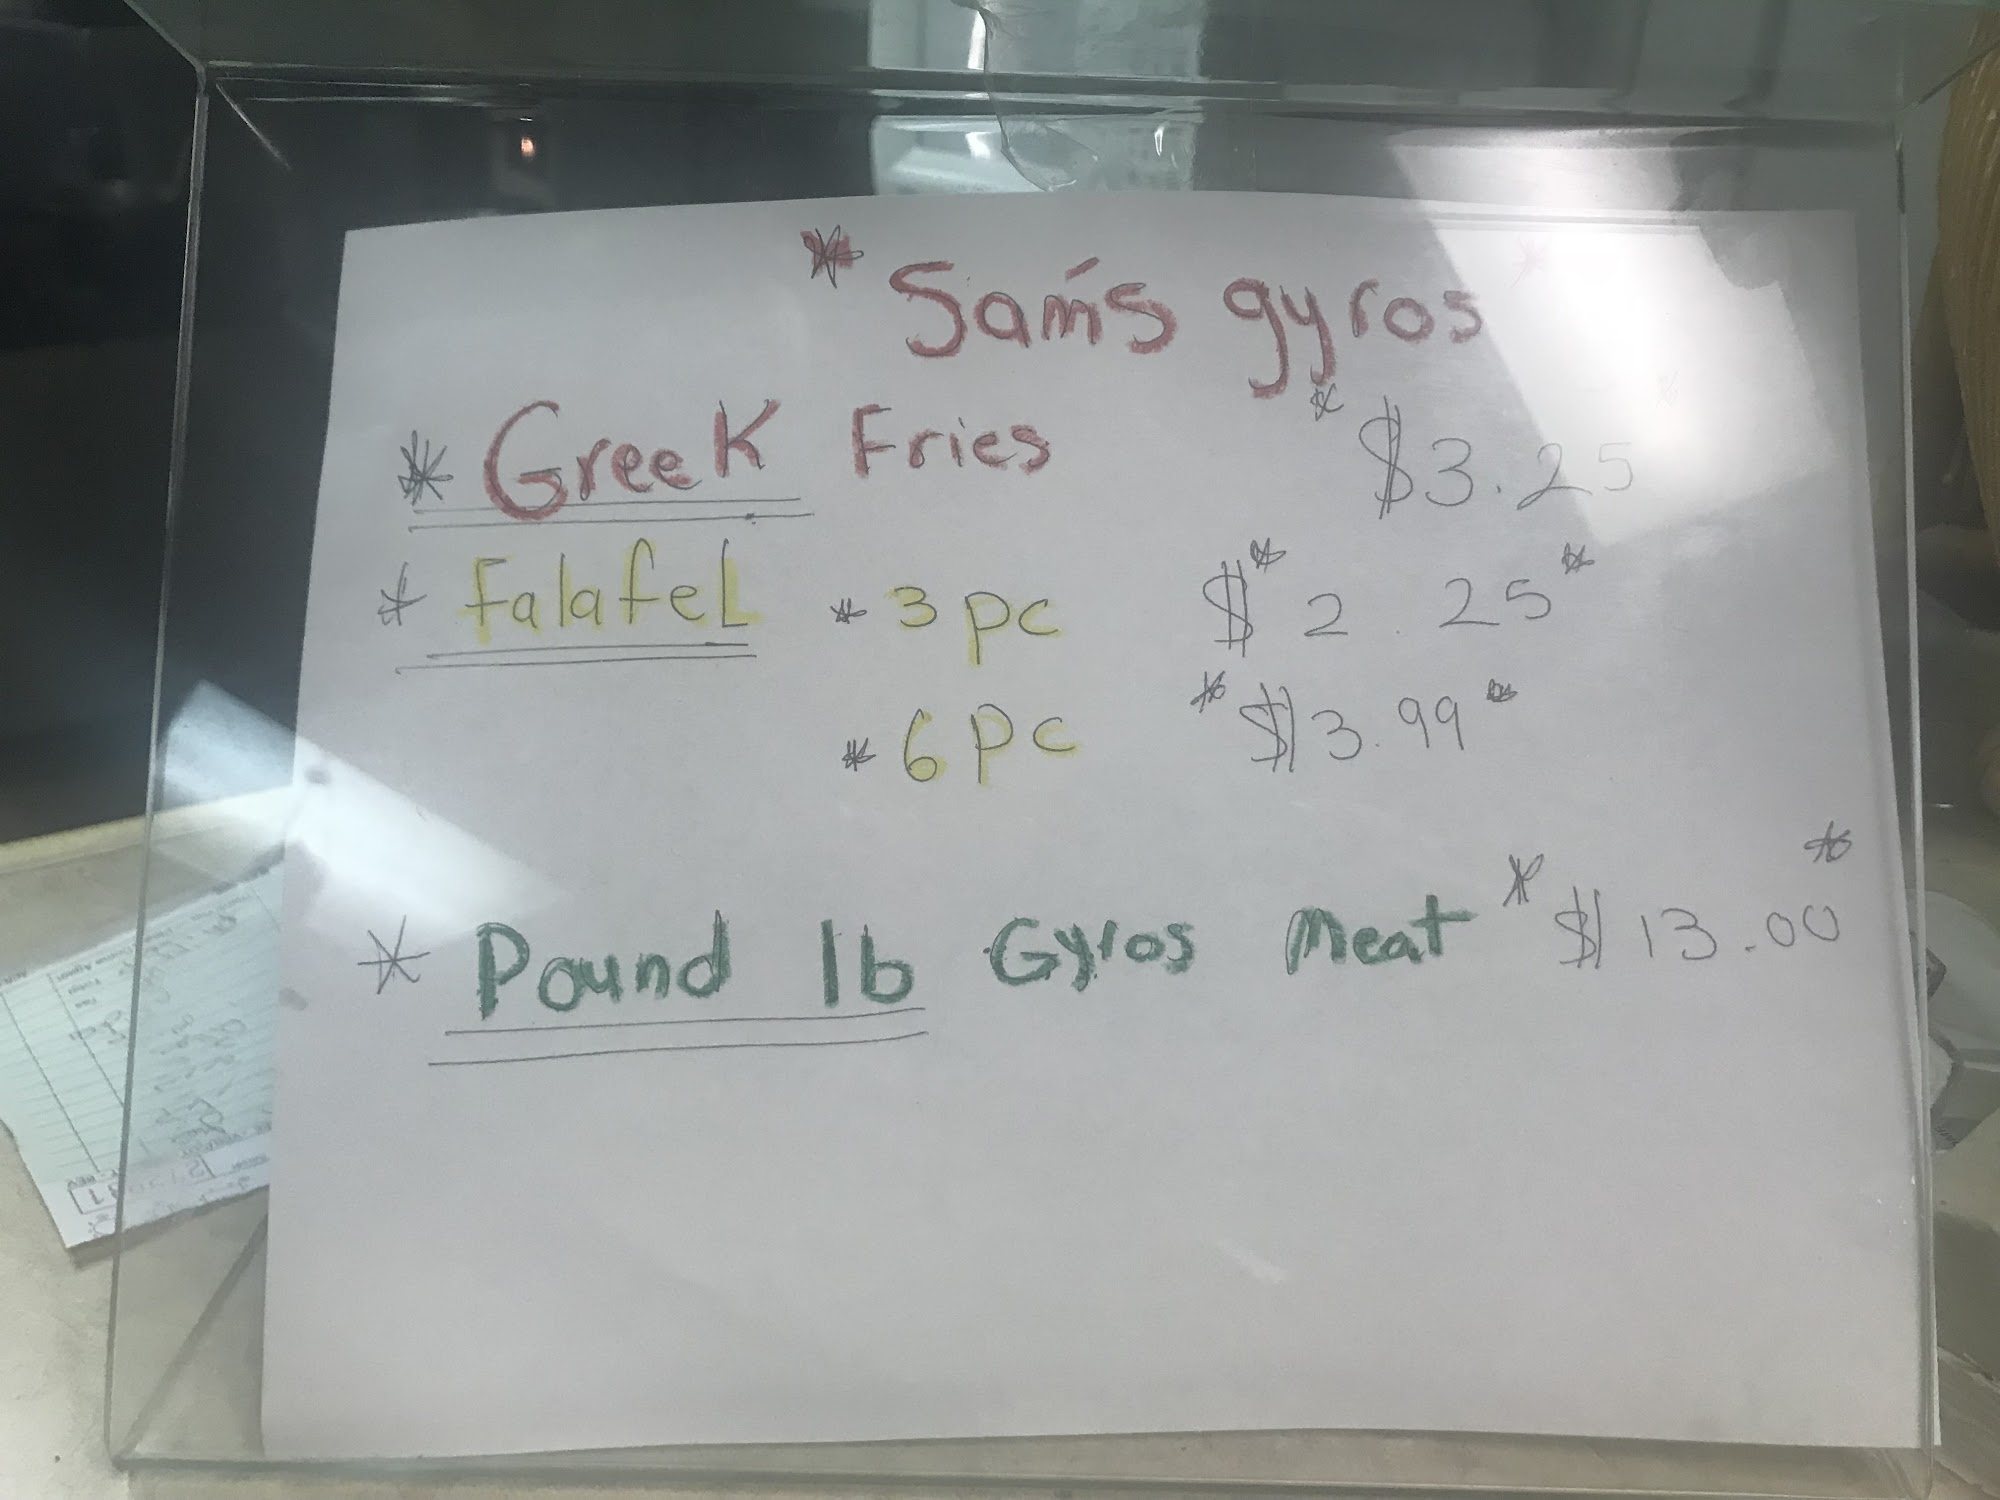 * Sam's gyros *
* Greek Fries * $3.25
* Falafel * 3 pc $ * 2.25 *
* 6 pc * $3.99 *
* Pound lb Gyros meat * $13.00 *